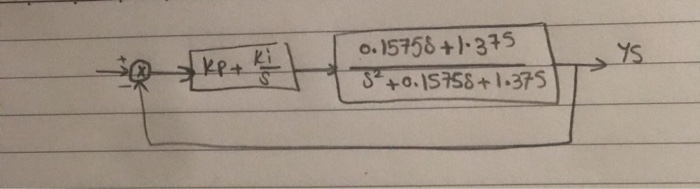 +
-
KP + Ki/S
0.1575S + 1.375
S² + 0.1575S + 1.375
YS